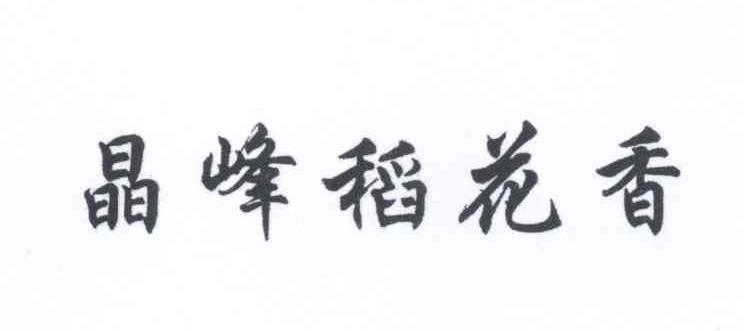 晶峰稻花香